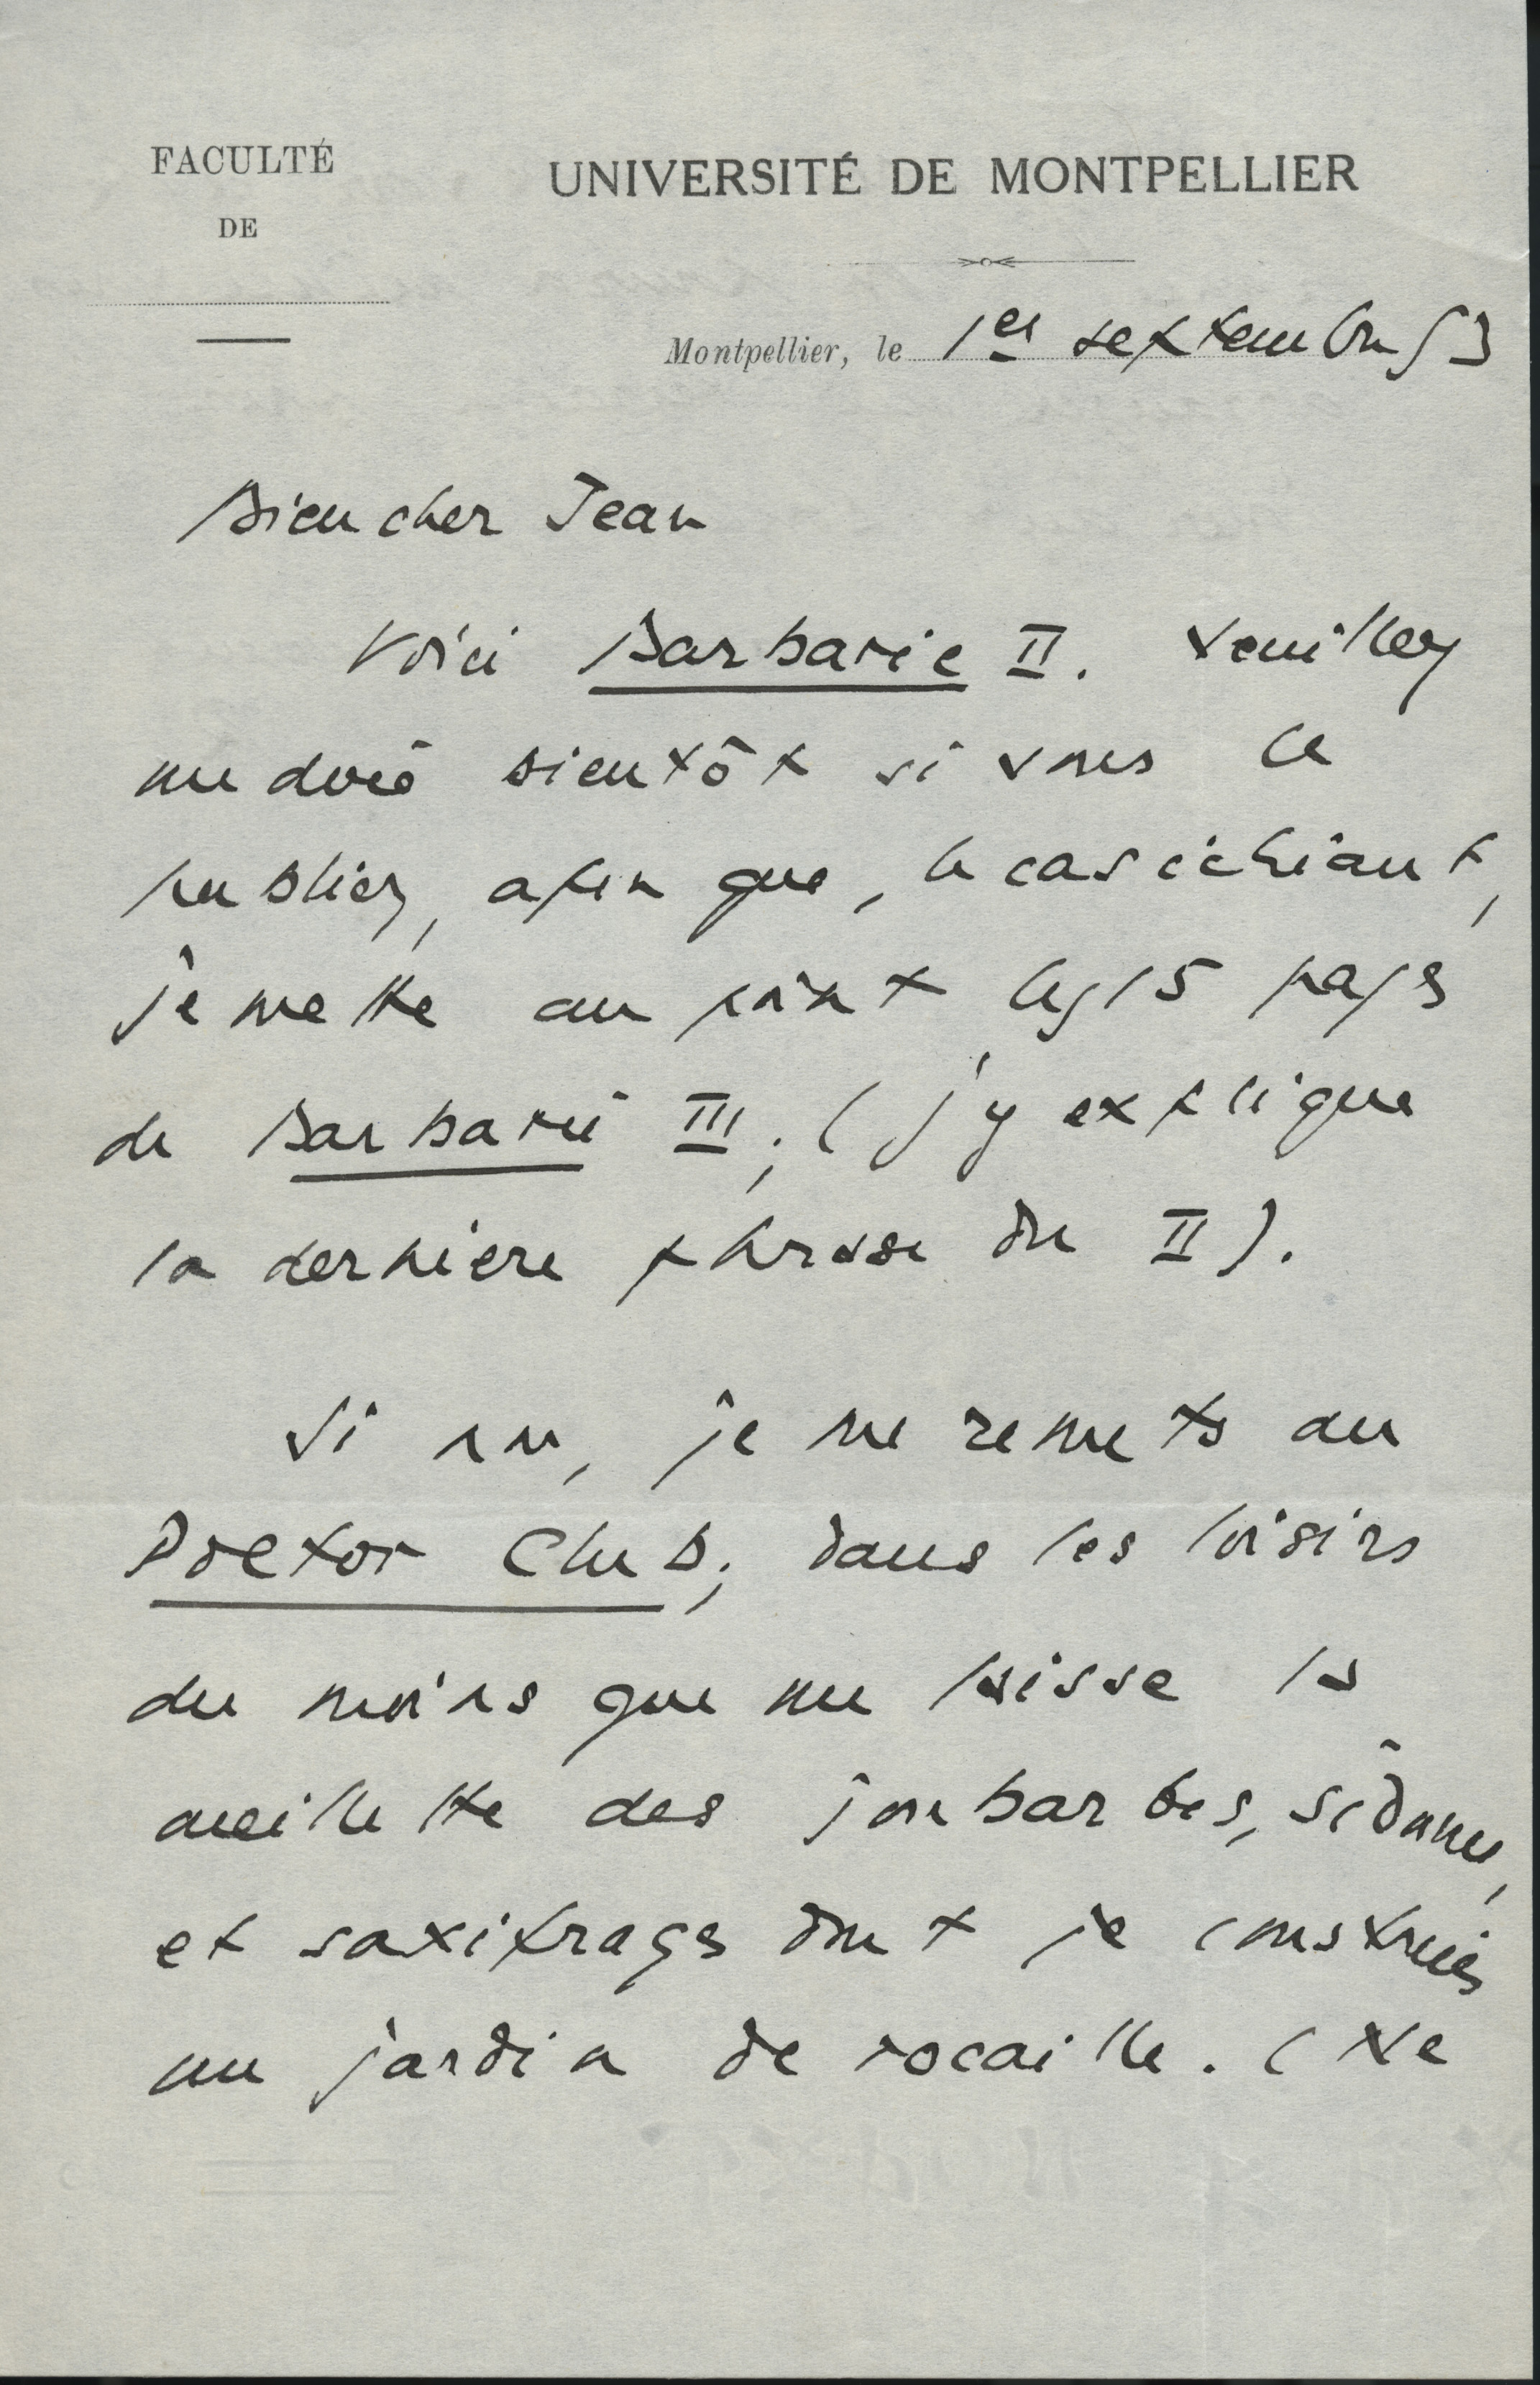 FACULTÉ
DE
UNIVERSITÉ DE MONTPELLIER
Montpellier, le 1er septembre 53
Bien cher Jean
Voici Barbarie II. Veuillez
me dire bientôt si vous le
publiez, afin que, le cas échéant,
je mette au point les 15 pages
de Barbarie III; (j'y explique
la dernière phrase du II).
Si non, je me remets au
Doctor Club; dans les loisirs
du moins que me laisse la
cueillette des joubarbes, sédums,
et saxifrages dont je construis
un jardin de rocaille. (Ne